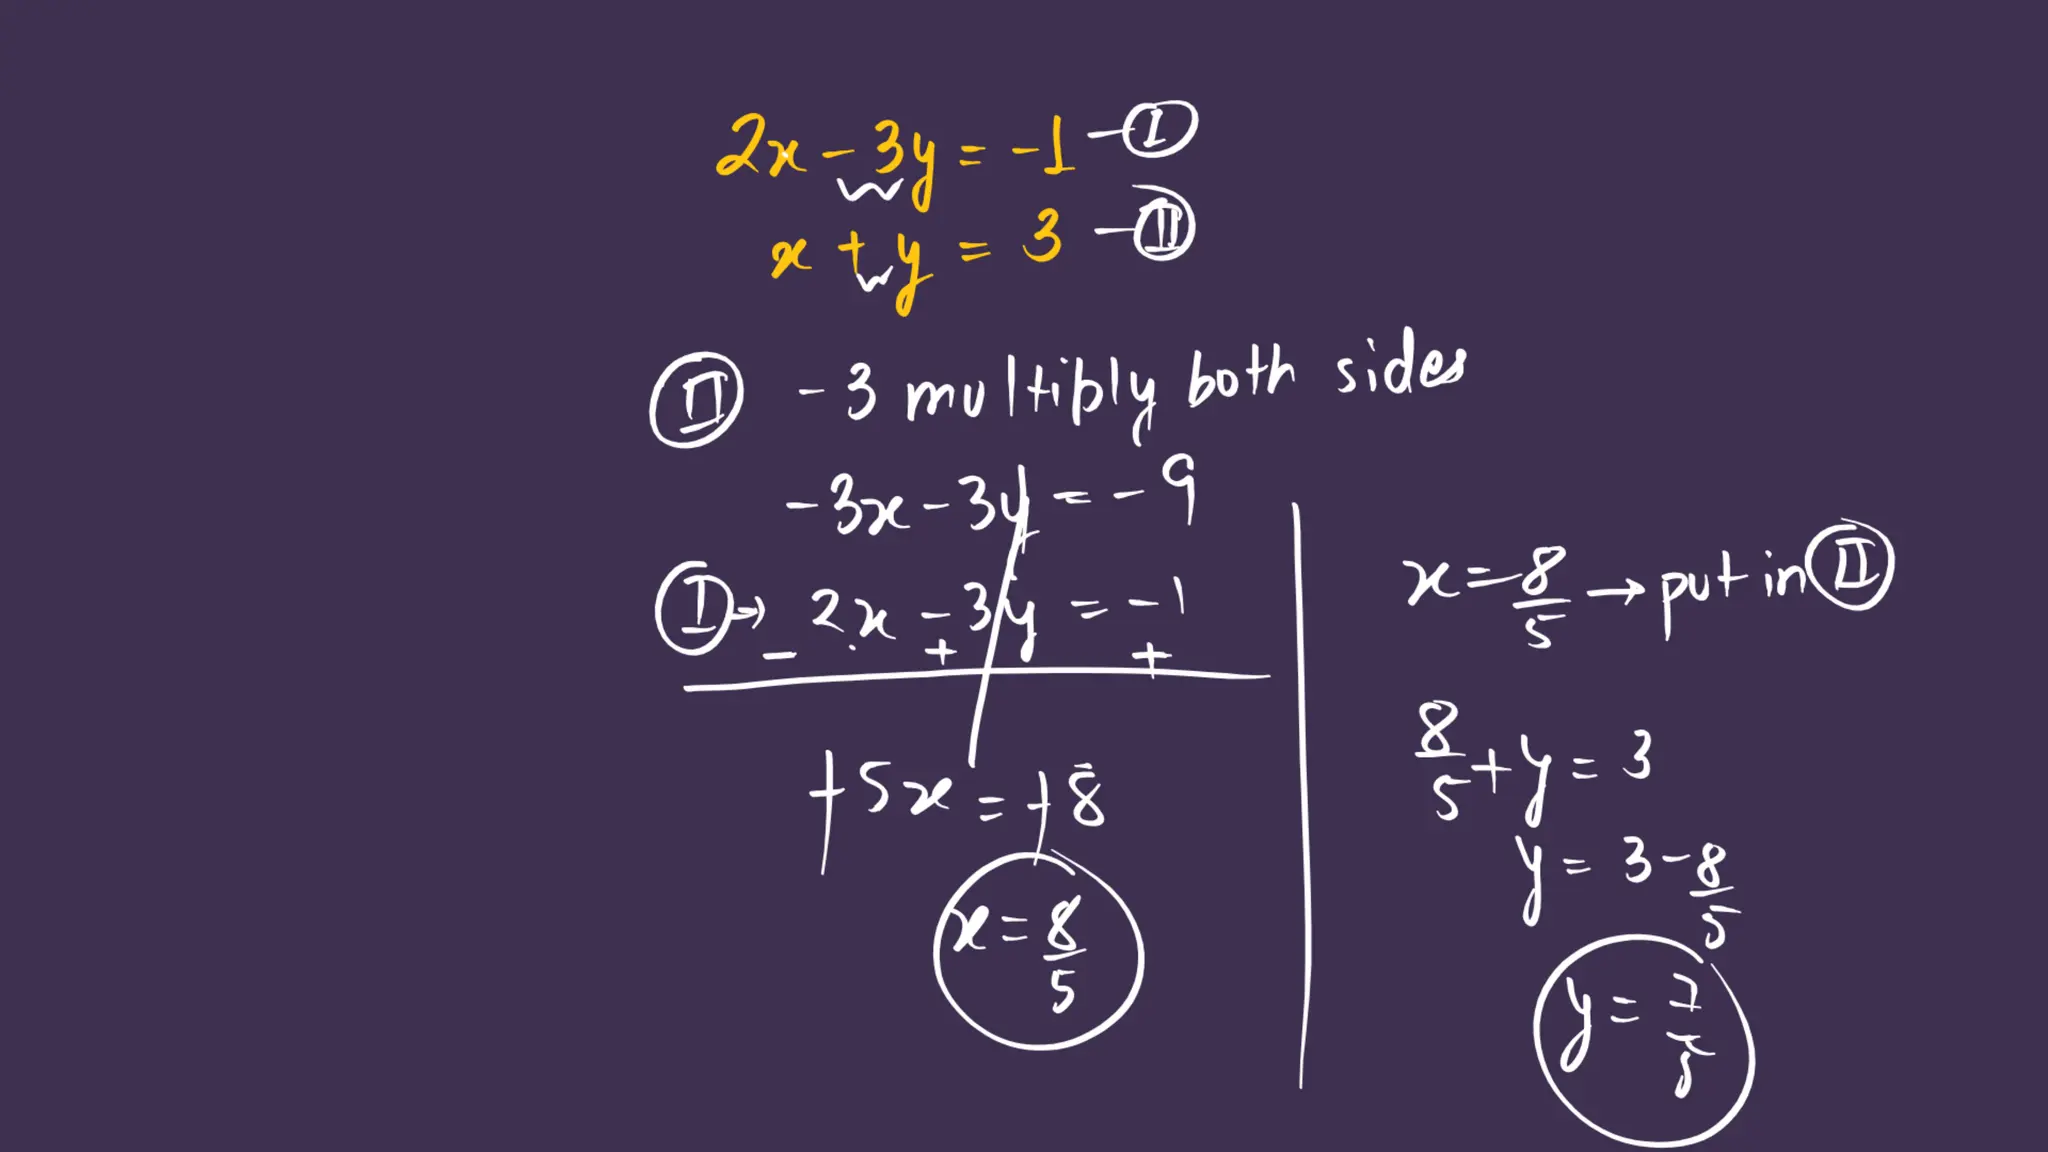 2x - 3y = -1 — I
x + y = 3 — II
II -3 multiply both sides
-3x - 3y = -9
I → 2x - 3y = -1
- + +
+5x = +8
x = 8/5
x = 8/5 → put in II
8/5 + y = 3
y = 3 - 8/5
y = 7/5